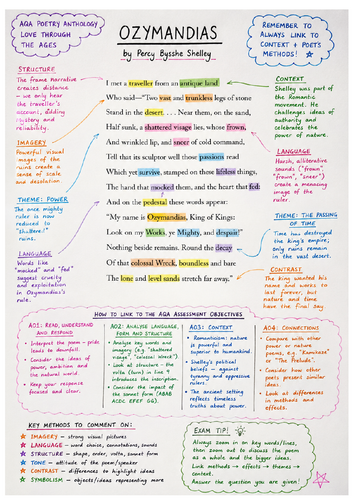 AQA POETRY ANTHOLOGY
LOVE THROUGH
THE AGES
OZYMANDIAS
by Percy Bysshe Shelley
REMEMBER TO
ALWAYS LINK TO
CONTEXT + POET'S
METHODS!
STRUCTURE
The frame narrative
creates distance
– we only hear
the traveller's
account, adding
mystery and
reliability.
IMAGERY
Powerful visual
images of the
ruins create a
sense of scale
and desolation.
THEME: POWER
The once mighty
ruler is now
reduced to
ruins.
LANGUAGE
Words like
"mocked" and "fed"
suggest cruelty
and exploitation
in Ozymandias's
rule.
I met a traveller from an antique land
Who said—"Two vast and trunkless legs of stone
Stand in the desert. . . . Near them, on the sand,
Half sunk, a shattered visage lies, whose frown,
And wrinkled lip, and sneer of cold command,
Tell that its sculptor well those passions read
Which yet survive, stamped on these lifeless things,
The hand that mocked them, and the heart that fed:
And on the pedestal these words appear:
"My name is Ozymandias, King of Kings:
Look on my Works, ye Mighty, and despair!"
Nothing beside remains. Round the decay
Of that colossal Wreck, boundless and bare
The lone and level sands stretch far away."
CONTEXT
Shelley was part
of the Romantic
movement. He
challenges ideas of
authority and
celebrates the
power of nature.
LANGUAGE
Harsh, alliterative
sounds ("frown",
"sneer") create
a menacing image of
the ruler.
THEME: THE PASSING
OF TIME
Time has destroyed
the king's empire;
only ruins remain
in the vast desert.
CONTRAST
The king wanted his
name and works to
last forever, but
nature and time
have the final say.
HOW TO LINK TO THE AQA ASSESSMENT OBJECTIVES
AO1: READ, UNDERSTAND
AND RESPOND
• Interpret the poem – pride
leads to downfall.
• Consider the ideas of
power, ambition and
the natural world.
• Keep your response
focused and clear.
AO2: ANALYSE LANGUAGE,
FORM AND STRUCTURE
• Analyse key words and
imagery (e.g. "shattered
visage", "colossal Wreck").
• Look at structure – the
volta (turn) in line 9
introduces the inscription.
• Consider the impact of
the sonnet form (ABAB
AO3: CONTEXT
• Romanticism: nature is
powerful and superior
to humankind.
• Shelley's political
beliefs – against
tyranny and oppressive
rulers.
• The ancient setting
reflects timeless
truths about power.
AO4: CONNECTIONS
• Compare with other
power or nature
poems, e.g. "Kamikaze"
to "The Prelude".
• Consider how other
poets present similar
ideas.
• Look at differences
in methods and
effects.
KEY METHODS TO COMMENT ON:
IMAGERY – strong visual pictures
LANGUAGE – word choice, connotations, sounds
STRUCTURE – shape, order, volta, sonnet form
TONE – attitude of the poem/speaker
CONTRAST – differences to highlight ideas
SYMBOLISM – objects/ideas representing more
EXAM TIP!
Always zoom in on key words/lines,
then zoom out to discuss the poem
as a whole and the bigger ideas.
Link methods → effects → themes →
context.
Answer the question you are given!